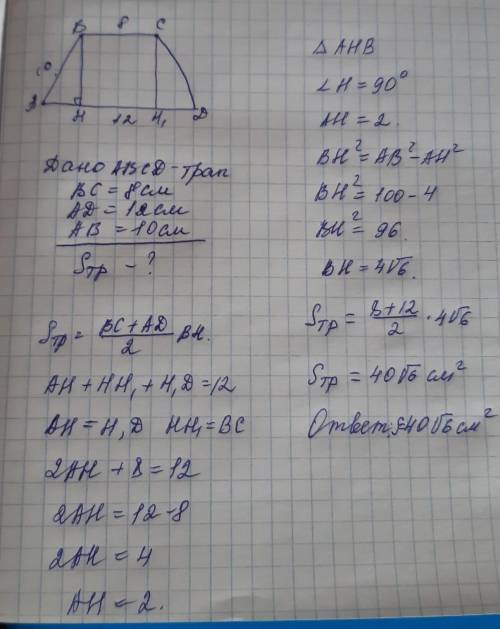 B 8 C
10
A H 12 H₁ D
Дано ABCD - трап
BC = 8см
AD = 12см
AB = 10см
Sтр - ?
Sтр = (BC + AD)/2 BH.
AH + HH₁ + H₁D = 12
AH = H₁D HH₁ = BC
2AH + 8 = 12
2AH = 12 - 8
2AH = 4
AH = 2.
△ AHB
∠H = 90°
AH = 2.
BH² = AB² - AH²
BH² = 100 - 4
BH² = 96.
BH = 4√6.
Sтр = (8 + 12)/2 · 4√6
Sтр = 40√6 см²
Ответ: S=40√6 см²